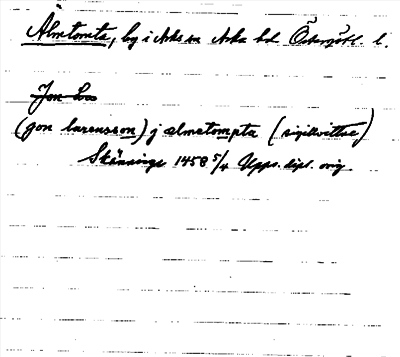 Älmtomta, by i Asks sn Aska hd Östergötl. l.
Jon La
(jon larensson) j ælmatompta (sigillvittne)
Skänninge 1458 5/4 Upps. dipl. orig.